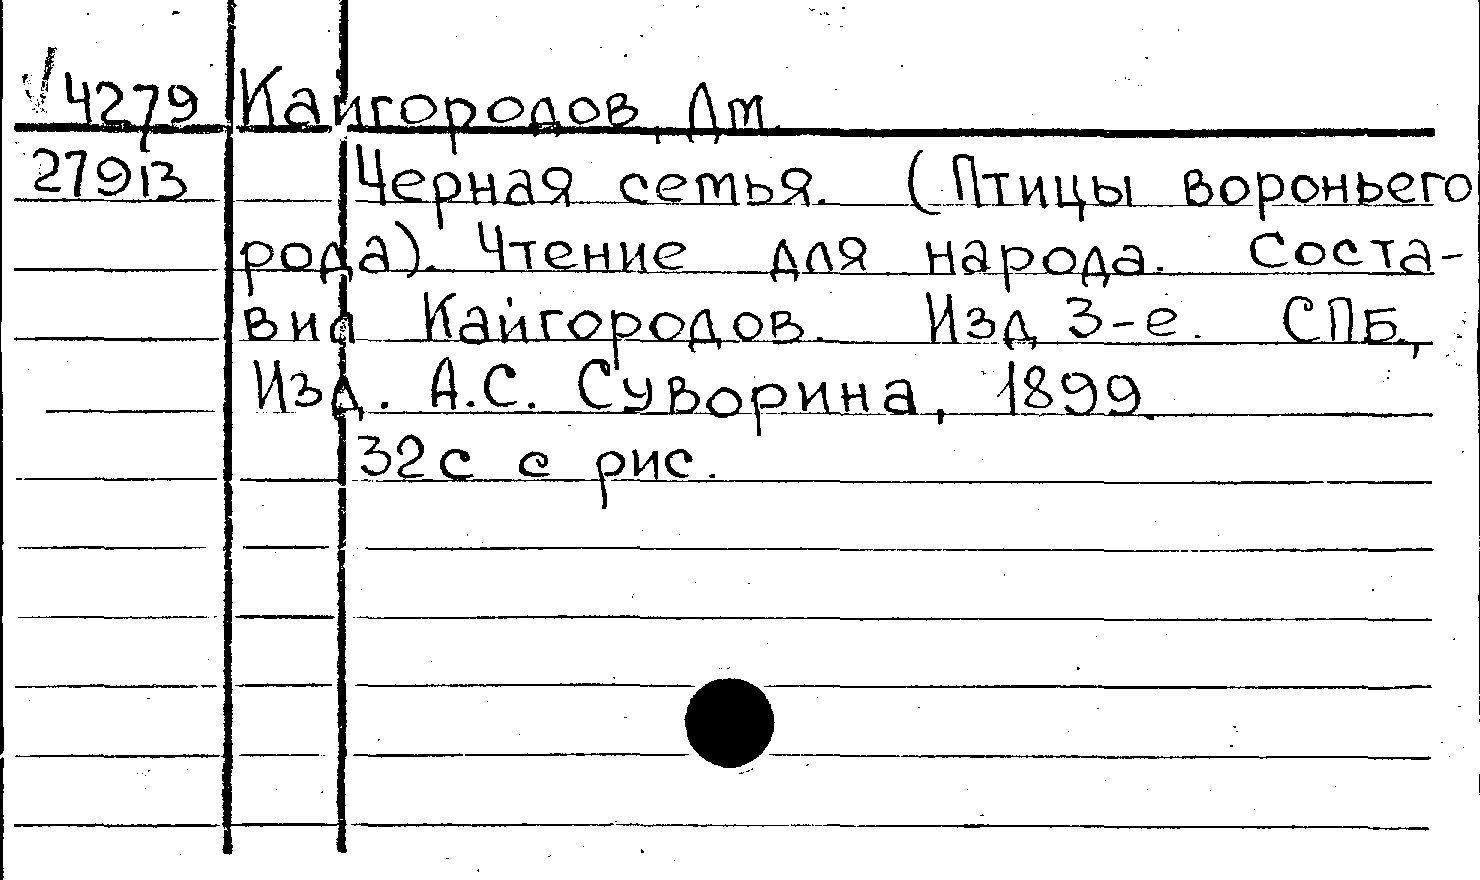 √4279 Кайгородов, Дм.
27913 Черная семья. (Птицы вороньего
рода). Чтение для народа. Соста-
вил Кайгородов. Изд 3-е. СПБ.,
Изд. А.С. Суворина, 1899.
32с с рис.